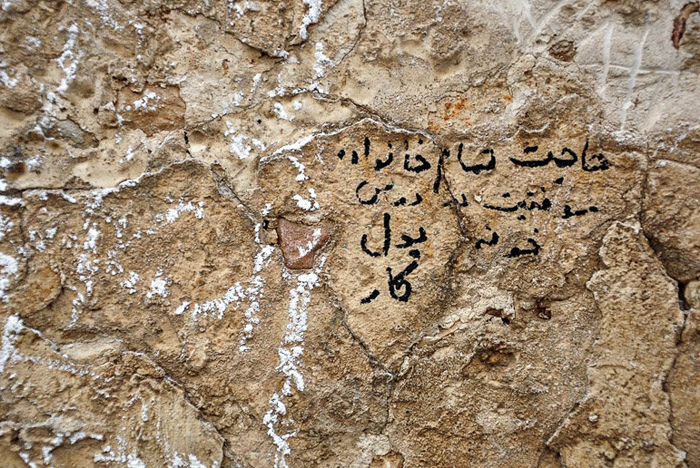 حاجت تمام خانواده
موفقیت در درس
خونه پول
کار